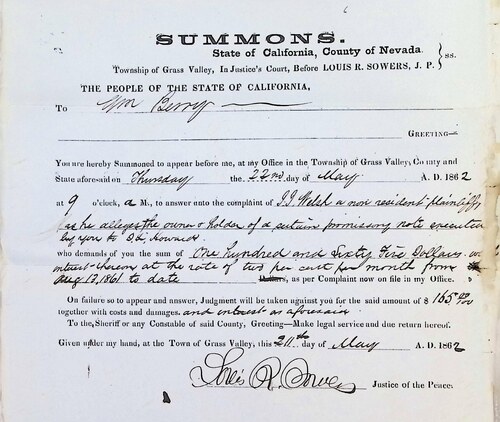 SUMMONS.
State of California, County of Nevada. } ss.
Township of Grass Valley, In Justice's Court, Before LOUIS R. SOWERS, J. P.
THE PEOPLE OF THE STATE OF CALIFORNIA,
To Wm Berry
GREETING—
You are hereby Summoned to appear before me, at my Office in the Township of Grass Valley, County and
State aforesaid on Thursday the 22nd day of May A. D. 1862
at 9 o'clock, a M., to answer unto the complaint of J. J. Welsh a non resident plaintiff
as he alleges the owner & holder of a certain promissory note executed
by you to Howard
who demands of you the sum of One hundred and Sixty five Dollars
interest thereon at the rate of two per cent per month from
Aug 17, 1861 to date Dollars, as per Complaint now on file in my Office.
On failure so to appear and answer, Judgment will be taken against you for the said amount of $ 165 00/100
together with costs and damages. and interest as aforesaid
To the Sheriff or any Constable of said County, Greeting—Make legal service and due return hereof.
Given under my hand, at the Town of Grass Valley, this day of May A. D. 1862
Louis R. Sowers Justice of the Peace.